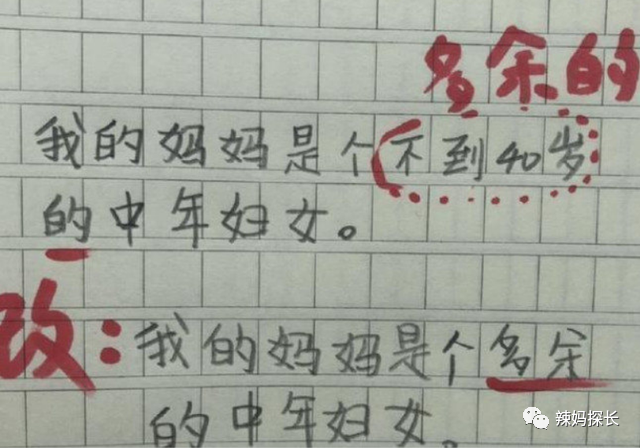 多余的
我的妈妈是个不到40岁
的中年妇女。
改：我的妈妈是个多余
的中年妇女。
辣妈探长